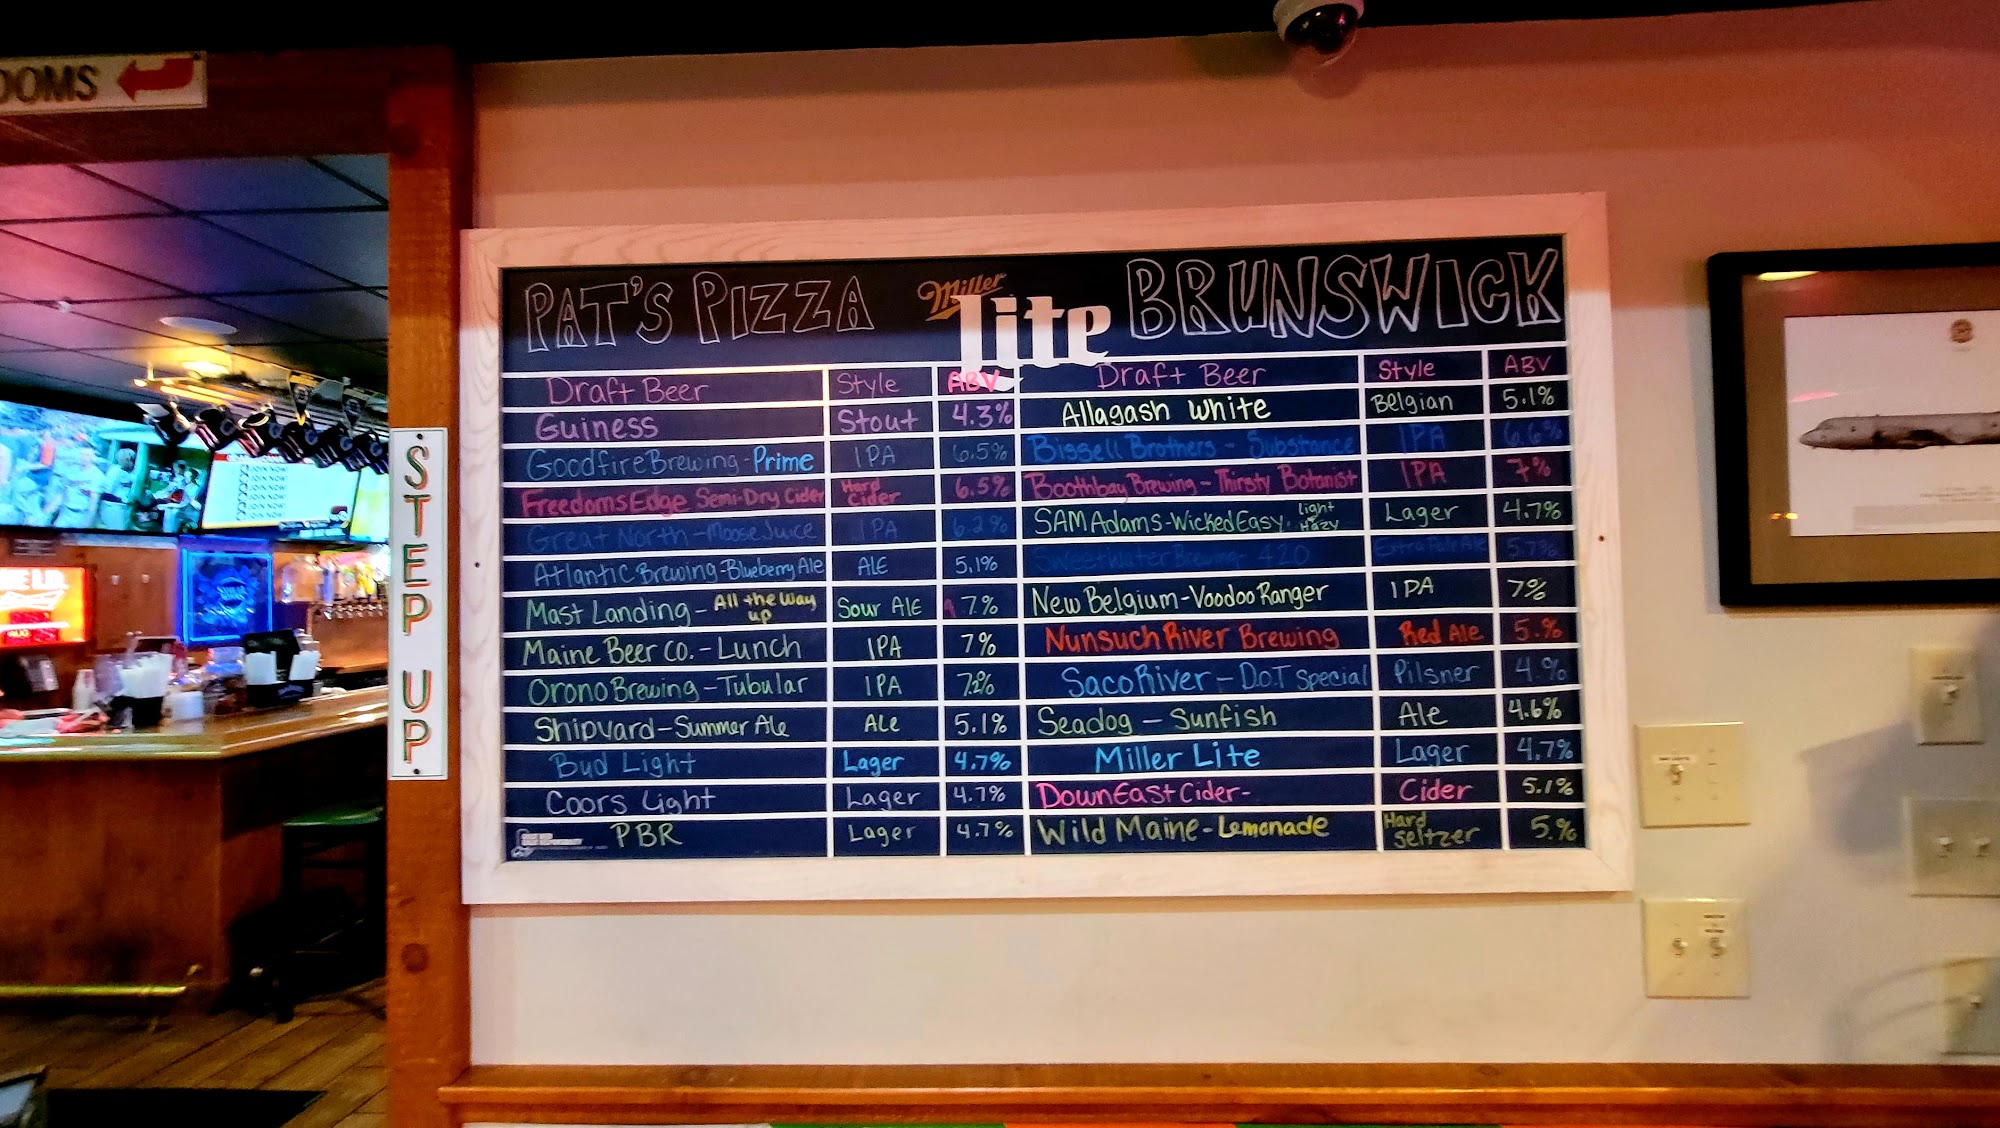 OOMS
STEP UP
JOIN NOW!
JOIN NOW!
JOIN NOW!
JOIN NOW!
JOIN NOW!
PAT'S PIZZA Miller Lite BRUNSWICK
Draft Beer Style ABV
Guiness Stout 4.3%
Goodfire Brewing-Prime IPA 6.5%
Freedoms Edge Semi-Dry Cider Hard Cider 6.5%
Great North-Moose Juice IPA 6.2%
Atlantic Brewing-Blueberry Ale ALE 5.1%
Mast Landing- All the Way up Sour ALE 7.%
Maine Beer Co.-Lunch IPA 7%
Orono Brewing-Tubular IPA 7.2%
Shipyard-Summer Ale ALe 5.1%
Bud Light Lager 4.7%
Coors Light Lager 4.7%
PBR Lager 4.7%
Draft Beer Style ABV
Allagash White Belgian 5.1%
Bissell Brothers - Substance IPA 6.6%
Boothbay Brewing-Thirsty Botanist IPA 7%
SAM Adams-Wicked Easy. light + HAZY Lager 4.7%
Sweetwater 420 Extra Pale Ale 5.7%
New Belgium-Voodoo Ranger IPA 7%
Nunsuch River Brewing Red Ale 5.%
Saco River - D.O.T special Pilsner 4.%
Seadog - Sunfish Ale 4.6%
Miller Lite Lager 4.7%
Down East Cider- Cider 5.1%
Wild Maine-Lemonade Hard Seltzer 5.%